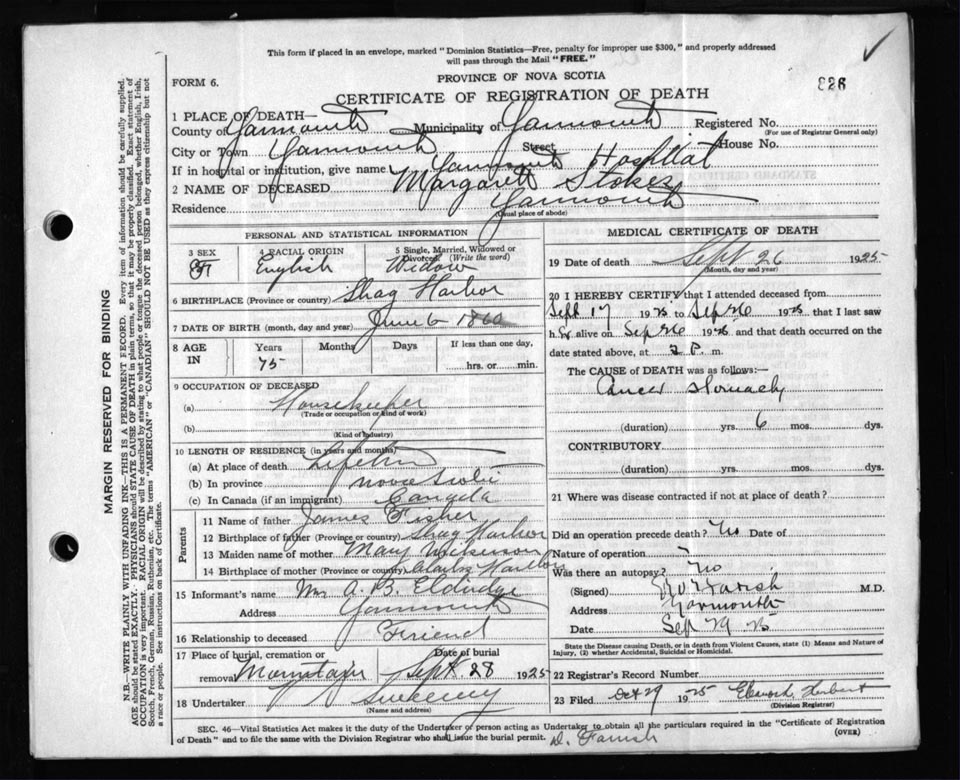 This form if placed in an envelope, marked "Dominion Statistics—Free, penalty for improper use $300," and properly addressed
will pass through the Mail "FREE."
FORM 6.
PROVINCE OF NOVA SCOTIA
826
CERTIFICATE OF REGISTRATION OF DEATH
1 PLACE OF DEATH—
County of Yarmouth Municipality of Yarmouth Registered No.
(For use of Registrar General only)
City or Town Yarmouth Street House No.
If in hospital or institution, give name Yarmouth Hospital
2 NAME OF DECEASED Margaret Stokes
Residence Yarmouth
(Usual place of abode)
PERSONAL AND STATISTICAL INFORMATION
3 SEX 4 RACIAL ORIGIN 5 Single, Married, Widowed or
Divorced (Write the word)
English Widow
6 BIRTHPLACE (Province or country) Shag Harbor
7 DATE OF BIRTH (month, day and year) June 6
8 AGE IN Years Months Days If less than one day,
75 hrs. or min.
9 OCCUPATION OF DECEASED
(a) Housekeeper
(Trade or occupation or kind of work)
(b)
(Kind of Industry)
10 LENGTH OF RESIDENCE (in years and months)
(a) At place of death
(b) In province Nova Scotia
(c) In Canada (if an immigrant) Canada
Parents
11 Name of father James Fisher
12 Birthplace of father (Province or country) Shag Harbor
13 Maiden name of mother Mary
14 Birthplace of mother (Province or country) Harbor
15 Informant's name Mrs A. B. Eldridge
Address Yarmouth
16 Relationship to deceased Friend
17 Place of burial, cremation or removal Date of burial
Mountain Sept 28 1925
18 Undertaker Sweeney
(Name and address)
MEDICAL CERTIFICATE OF DEATH
19 Date of death Sept 26 1925
(Month, day and year)
20 I HEREBY CERTIFY that I attended deceased from
Sept 17 1925 to Sep 26 1925 that I last saw
h er alive on Sep 26 1925 and that death occurred on the
date stated above, at 2 P. m.
The CAUSE OF DEATH was as follows:—
Cancer Stomach
(duration) yrs. 6 mos. dys.
CONTRIBUTORY.
(duration) yrs. mos. dys.
21 Where was disease contracted if not at place of death?
Did an operation precede death? No Date of
Nature of operation
Was there an autopsy? No
(Signed) Farish M.D.
Address Yarmouth
Date Sep 29 25
State the Disease causing Death, or in death from Violent Causes, state (1) Means and Nature of
Injury, (2) whether Accidental, Suicidal or Homicidal.
22 Registrar's Record Number
23 Filed Oct 29 1925 Herbert
(Division Registrar)
SEC. 46—Vital Statistics Act makes it the duty of the Undertaker or person acting as Undertaker to obtain all the particulars required in the "Certificate of Registration
of Death" and to file the same with the Division Registrar who shall issue the burial permit. (OVER)
D. Farish
MARGIN RESERVED FOR BINDING
N.B.—WRITE PLAINLY WITH UNFADING INK—THIS IS A PERMANENT RECORD. Every item of information should be carefully supplied.
AGE should be stated EXACTLY. PHYSICIANS should STATE CAUSE OF DEATH in plain terms, so that it may be properly classified. Exact statement of
OCCUPATION is very important. RACIAL ORIGIN will be described by stating to what people or tongue the deceased person belonged, whether English, Irish,
Scotch, French, German, Russian, Ruthenian, etc. The terms "AMERICAN" or "CANADIAN" SHOULD NOT BE USED as they express citizenship but not
a race or people. See instructions on back of Certificate.